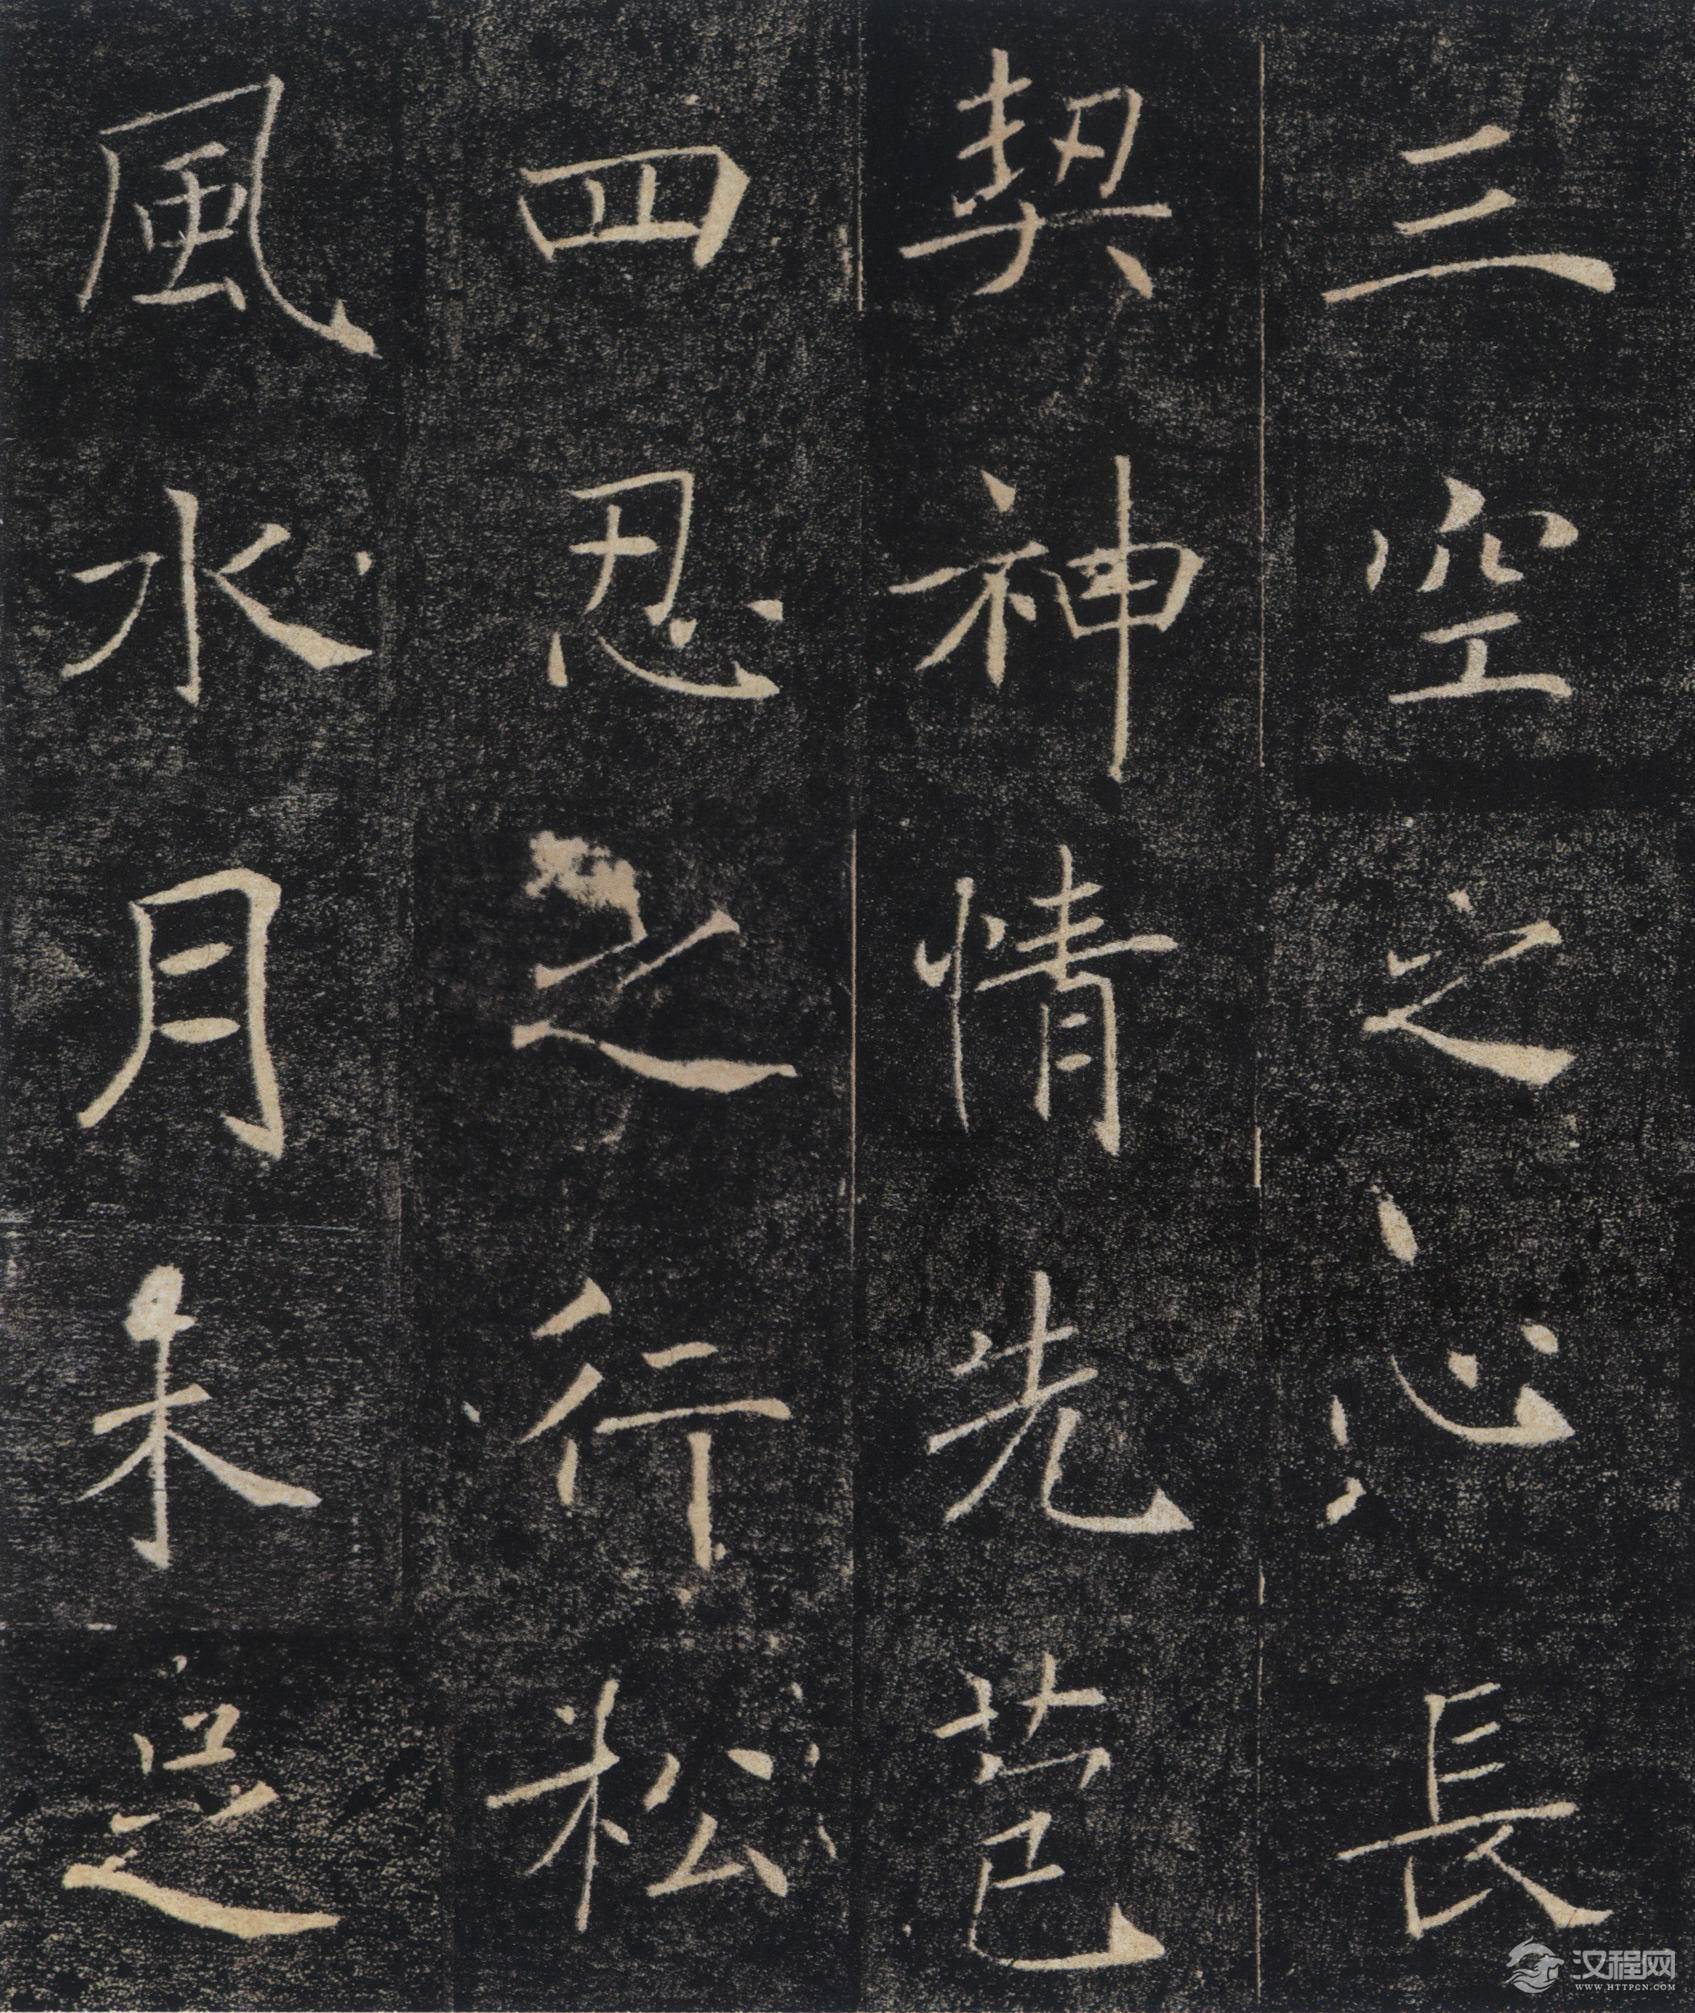 三空之心長
契神情先苞
四忍之行松
風水月未足
汉程网
WWW.HTTPCN.COM